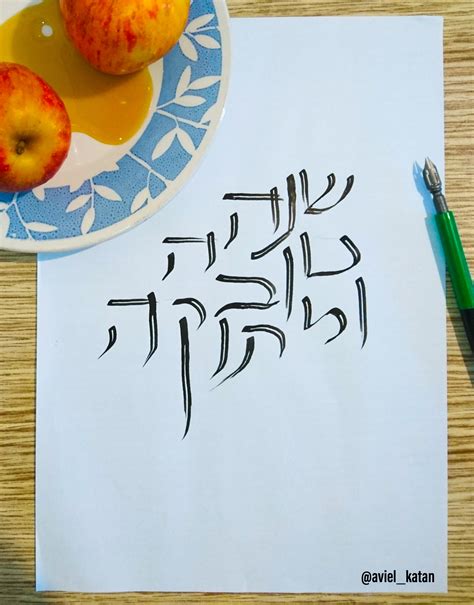 שנה
טובה
ומתוקה
@aviel_katan